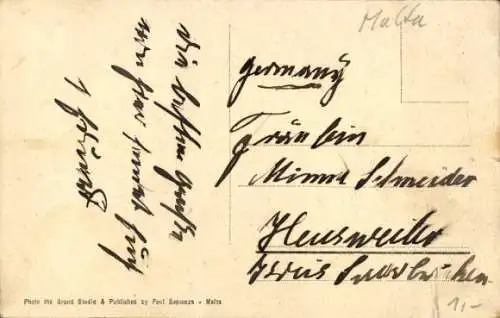 Malta
Germany
Fräulein
Minna Schneider
Heusweiler
Kreis Saarbrücken
Die besten Grüße
von hier sendet
1,-
Photo the Grand Studio & Published by Paul Sapienza - Malta